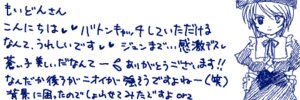 もいどんさん
こんにちは♥ バトンキャッチしていただける
なんて、うれしいです♥ ジュンまで…感激です>
蒼い子楽しいだなんて〜 ありがとうございます!!
なんだか後ろがニオイが強そうですよねー(笑)
背景に困ったのでしょわせてみたですよ orz